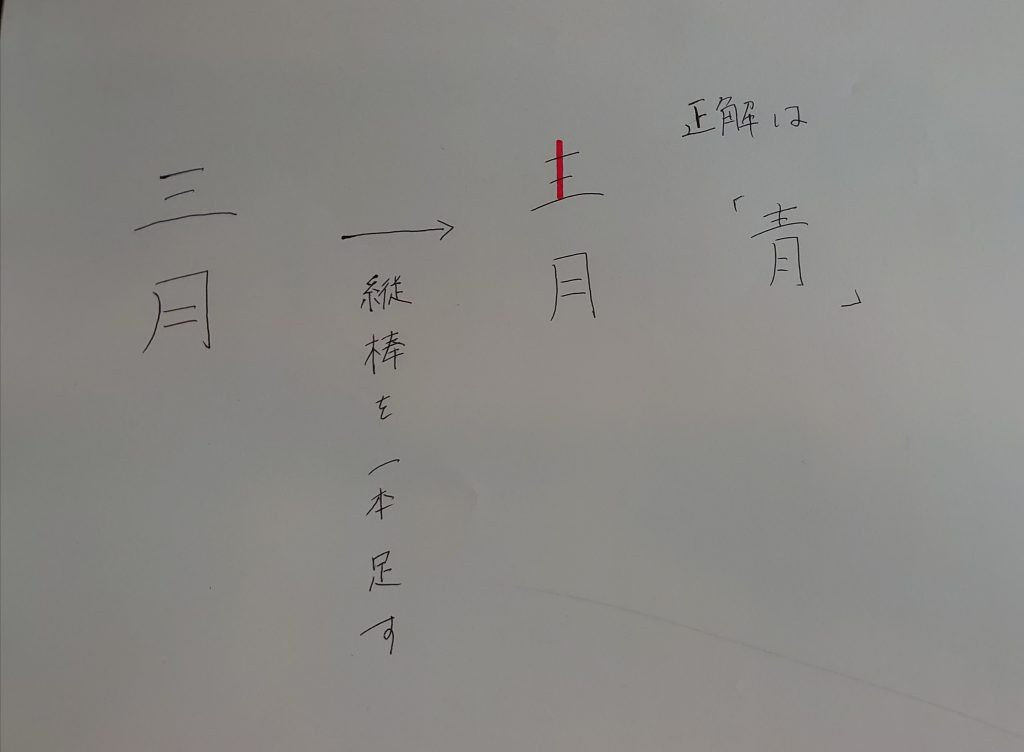 三月
縦棒を一本足す
龶月
正解は
「青」